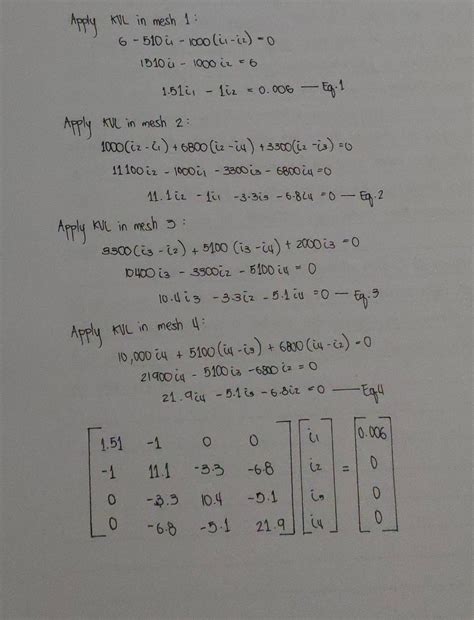 Apply KVL in mesh 1:
6 - 510i₁ - 1000(i₁-i₂) = 0
1510i₁ - 1000i₂ = 6
1.51i₁ - 1i₂ = 0.006 — Eq.1
Apply KVL in mesh 2:
1000(i₂-i₁) + 6800(i₂-i₄) + 3300(i₂-i₃) = 0
11100i₂ - 1000i₁ - 3300i₃ - 6800i₄ = 0
11.1i₂ - 1i₁ - 3.3i₃ - 6.8i₄ = 0 — Eq.2
Apply KVL in mesh 3:
3300(i₃-i₂) + 5100(i₃-i₄) + 2000i₃ = 0
10400i₃ - 3300i₂ - 5100i₄ = 0
10.4i₃ - 3.3i₂ - 5.1i₄ = 0 — Eq.3
Apply KVL in mesh 4:
10,000i₄ + 5100(i₄-i₃) + 6800(i₄-i₂) = 0
21900i₄ - 5100i₃ - 6800i₂ = 0
21.9i₄ - 5.1i₃ - 6.8i₂ = 0 — Eq4
1.51 -1 0 0 i₁ 0.006
-1 11.1 -3.3 -6.8 i₂ = 0
0 -3.3 10.4 -5.1 i₃ 0
0 -6.8 -5.1 21.9 i₄ 0